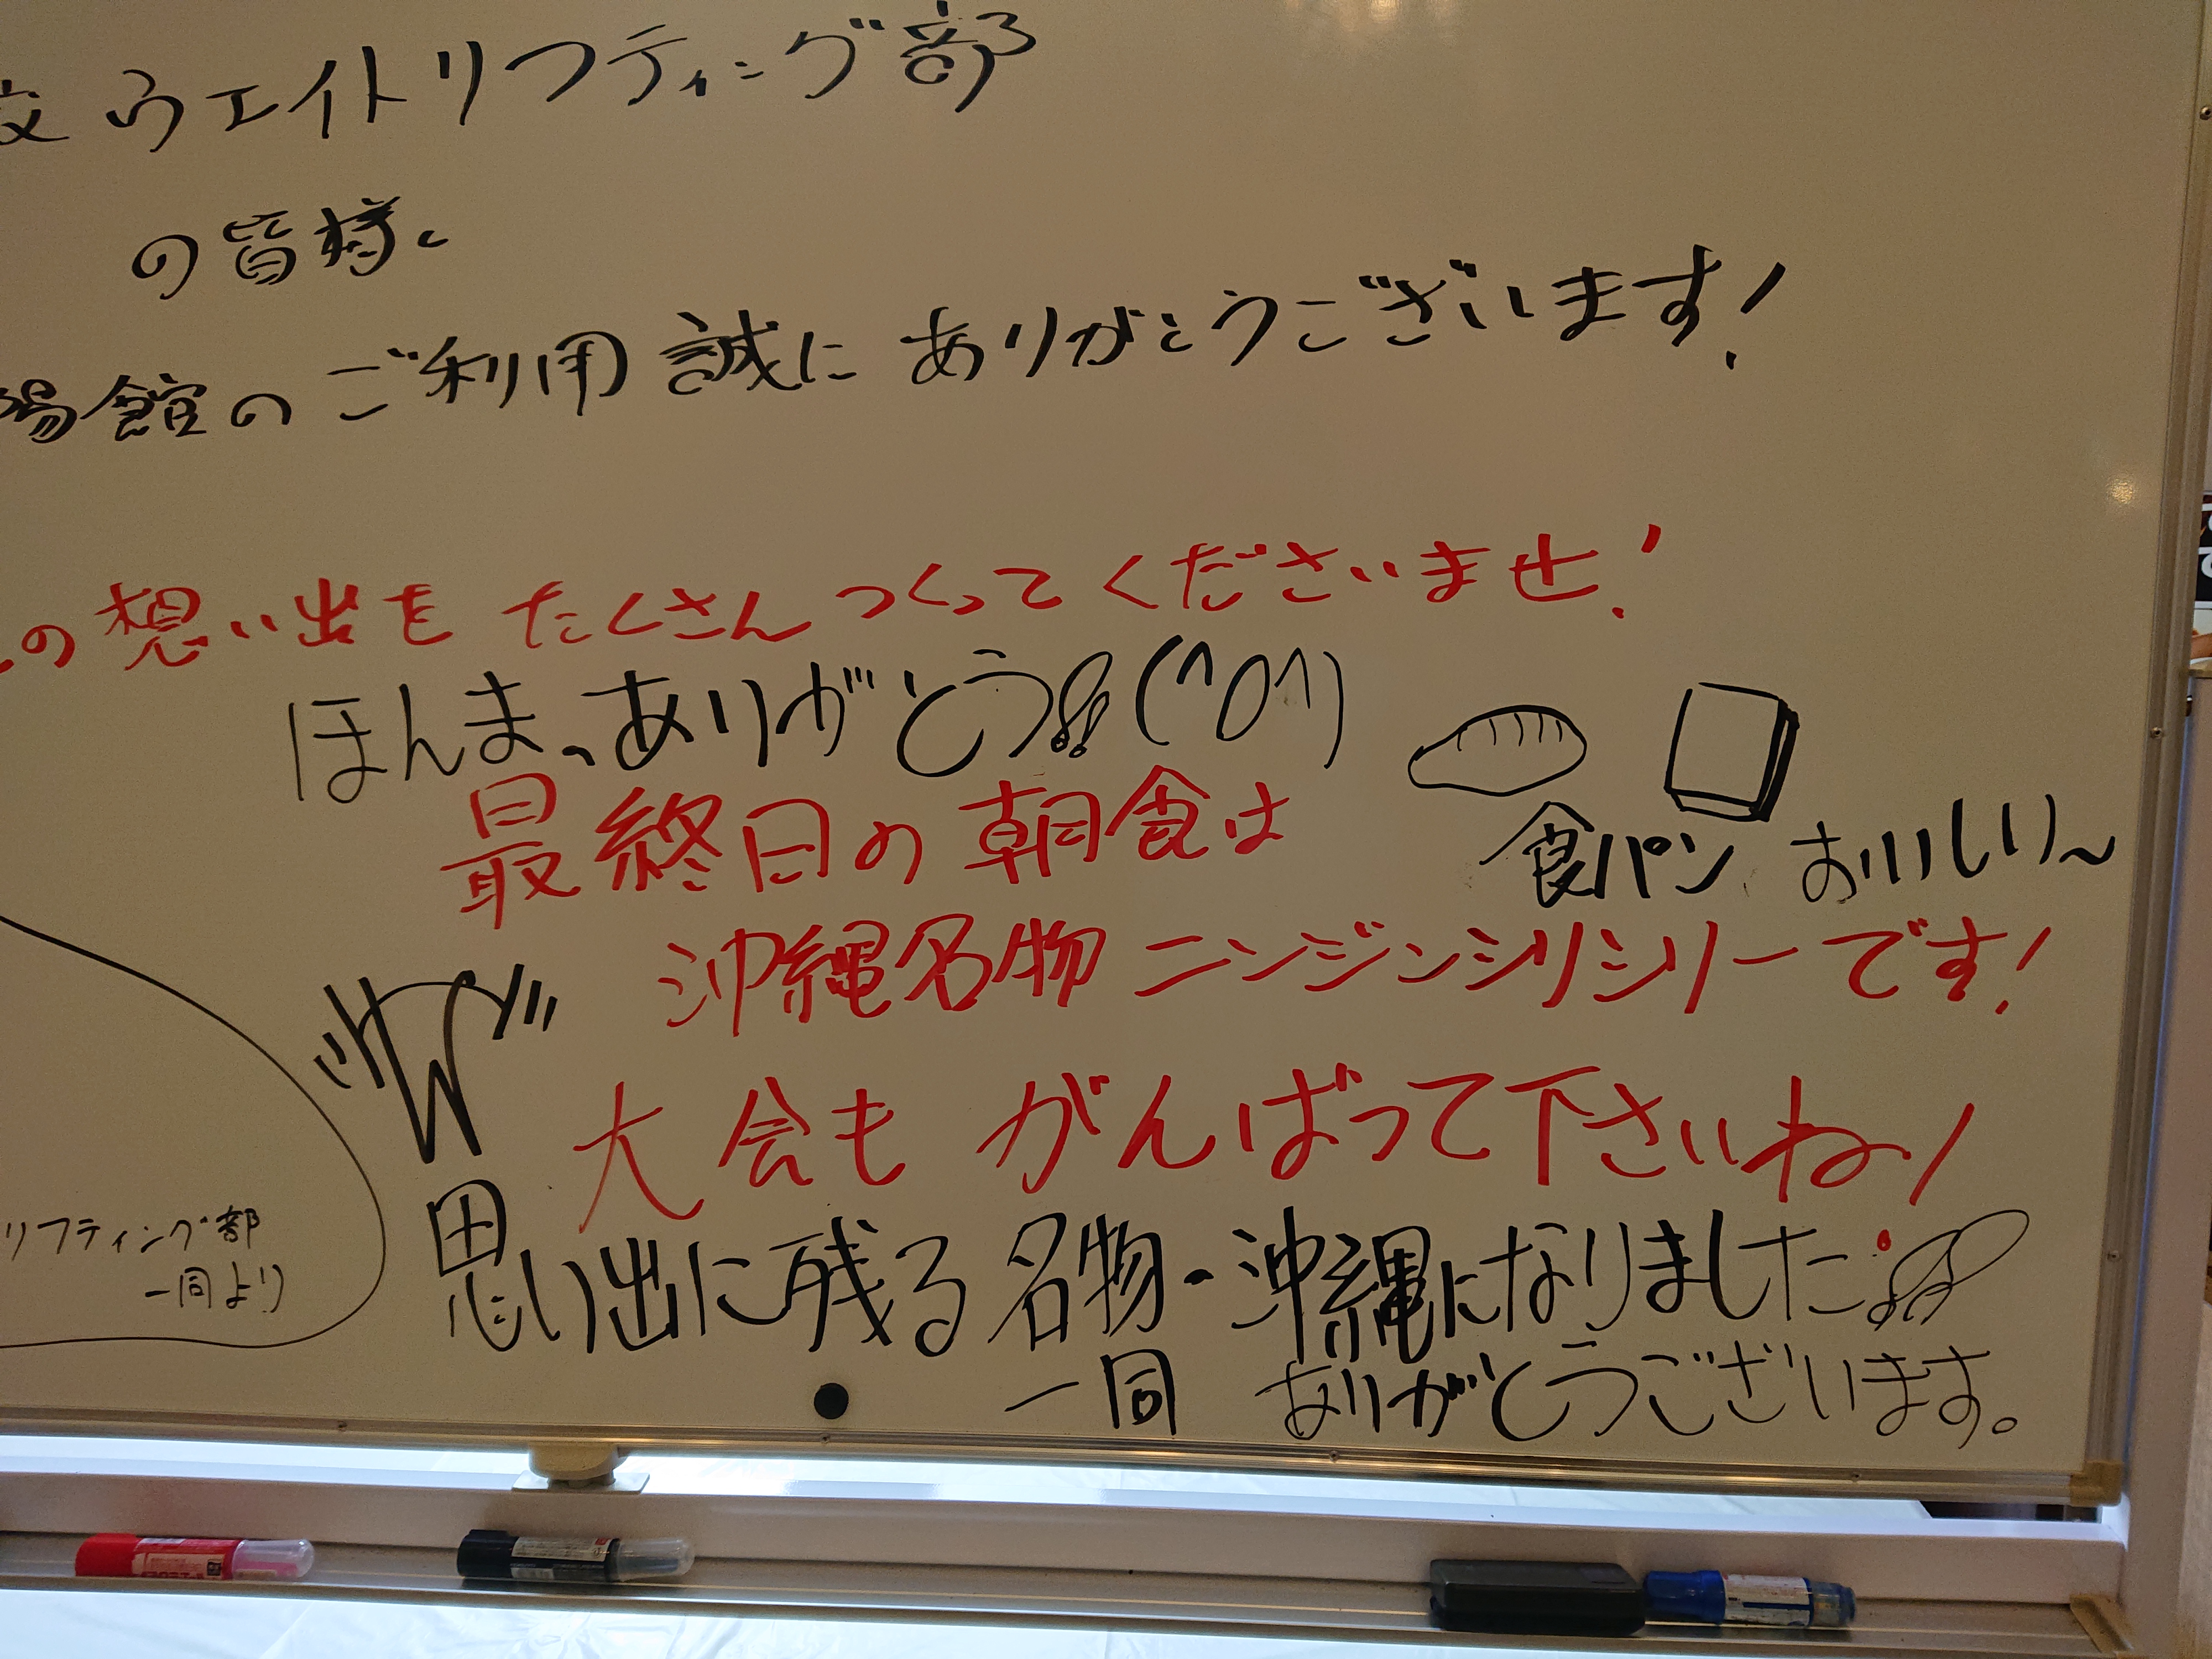 校ウエイトリフティング部
の皆様、
陽館のご利用 誠に ありがとうございます!
の想い出を たくさん つくって くださいませ!
ほんまっありがとう!!(^O^)
最終日の朝食は
食パン おいしい〜
沖縄名物 ニンジンシリシリーです!
大会も がんばって下さいね!
リフティング部
一同より
思い出に残る名物・沖縄になりました!!
一同 ありがとうございます。